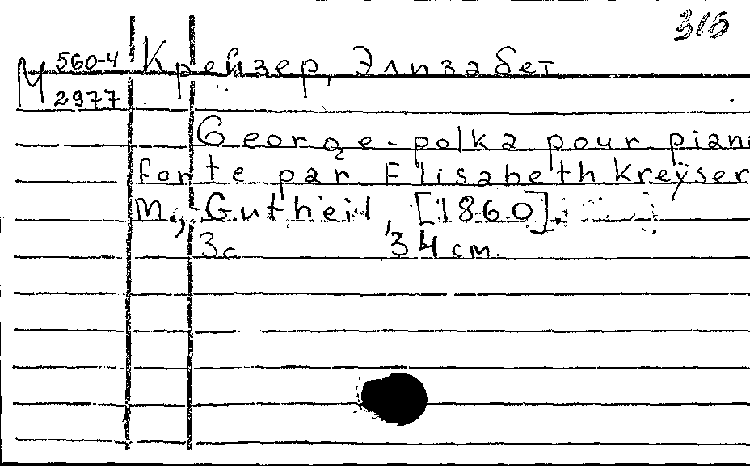 316
М 560-4 Крейзер, Элизабет
2977
George-polka pour piano
forte par Elisabeth Kreÿser
M., Gutheil, [1860].
3с 34 см.